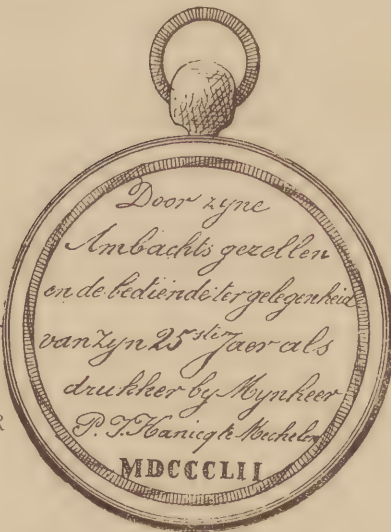 Door zyne
Ambachts gezellen
en de bediende ter gelegenheid
van Zyn 25ste Jaer als
drukker by Mynheer
P. J. Hanicq te Mechelen
MDCCCLII
R